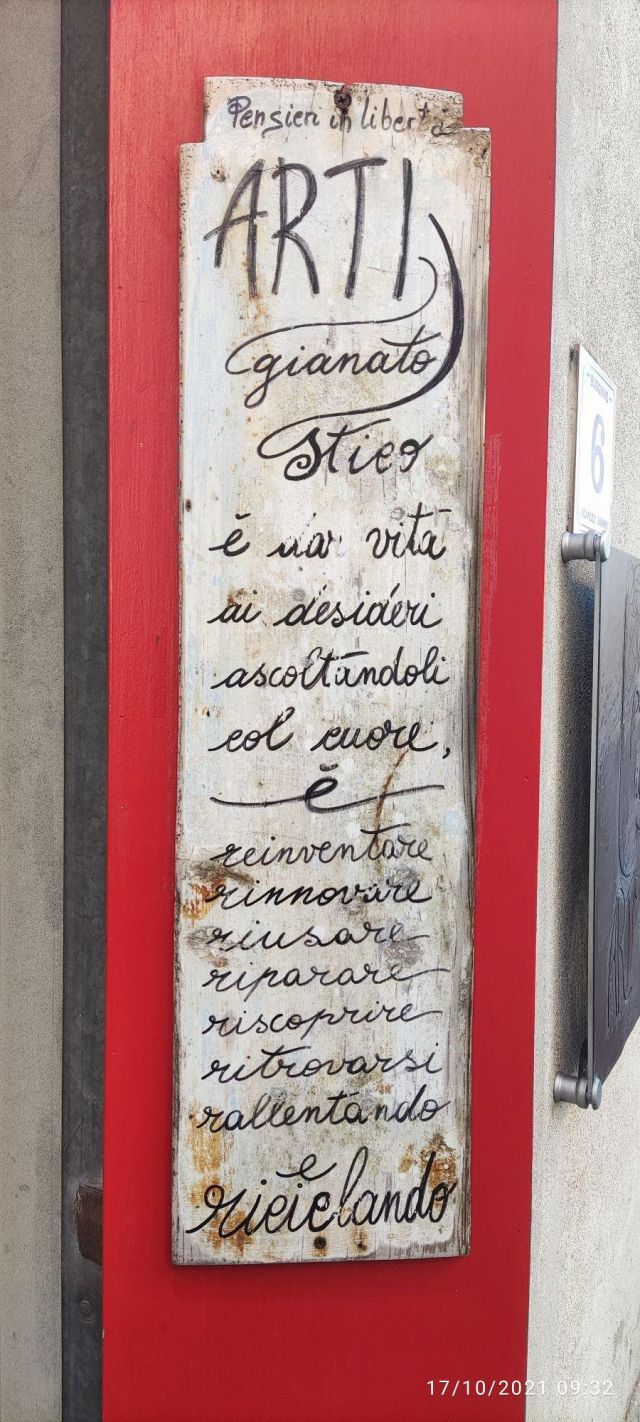 Pensieri in libertà
ARTI
gianato
stico
è dar vita
ai desideri
ascoltandoli
col cuore,
è
reinventare
rinnovare
riusare
riparare
riscoprire
ritrovarsi
rallentando
e
riciclando
6
17/10/2021 09:32